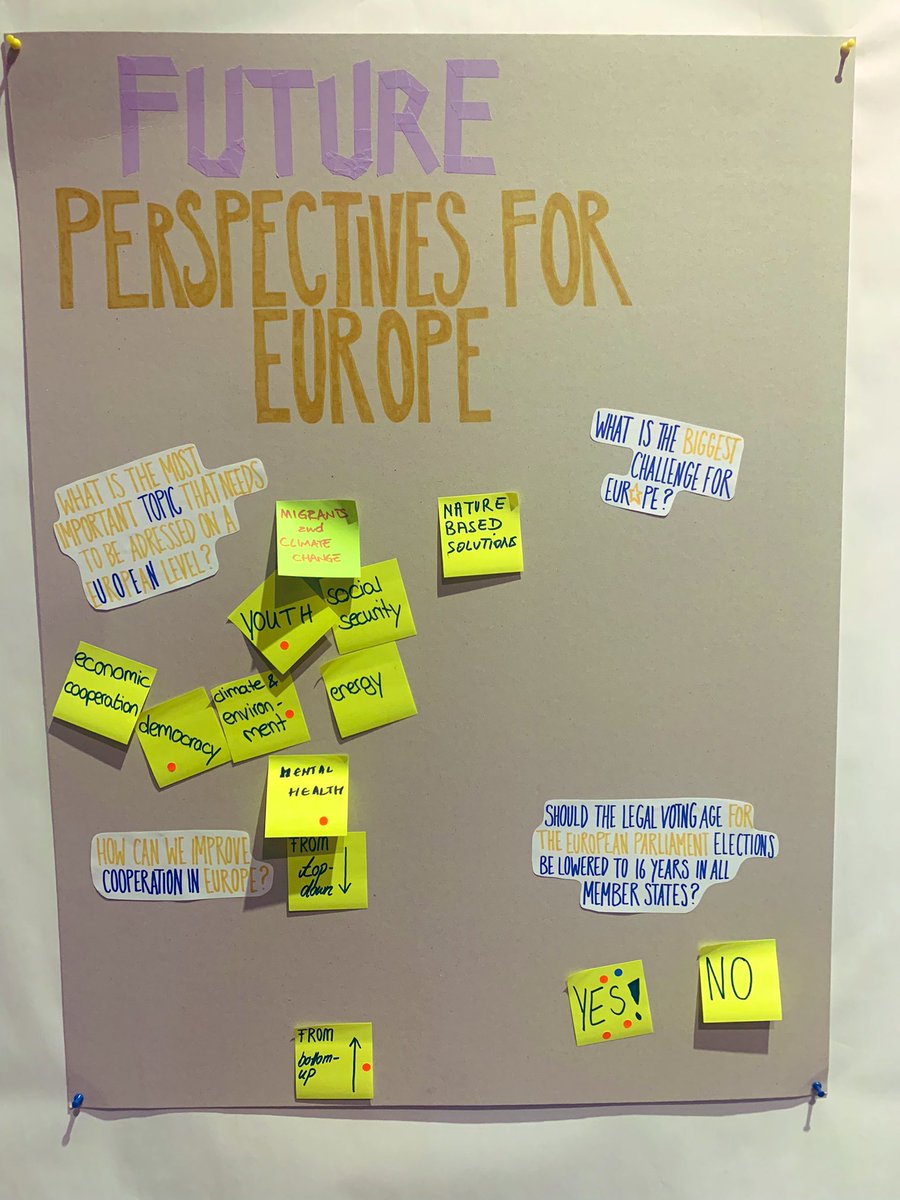 FUTURE
PERSPECTIVES FOR
EUROPE
WHAT IS THE MOST
IMPORTANT TOPIC THAT NEEDS
TO BE ADRESSED ON A
EUROPEAN LEVEL?
MIGRANTS
and
CLIMATE
CHANGE
YOUTH
social
security
economic
cooperation
democracy
climate &
environ-
ment
energy
MENTAL
HEALTH
WHAT IS THE BIGGEST
CHALLENGE FOR
EUROPE?
NATURE
BASED
SOLUTIONS
HOW CAN WE IMPROVE
COOPERATION IN EUROPE?
FROM
top-
down
FROM
bottom-
up
SHOULD THE LEGAL VOTING AGE FOR
THE EUROPEAN PARLIAMENT ELECTIONS
BE LOWERED TO 16 YEARS IN ALL
MEMBER STATES?
YES!
NO